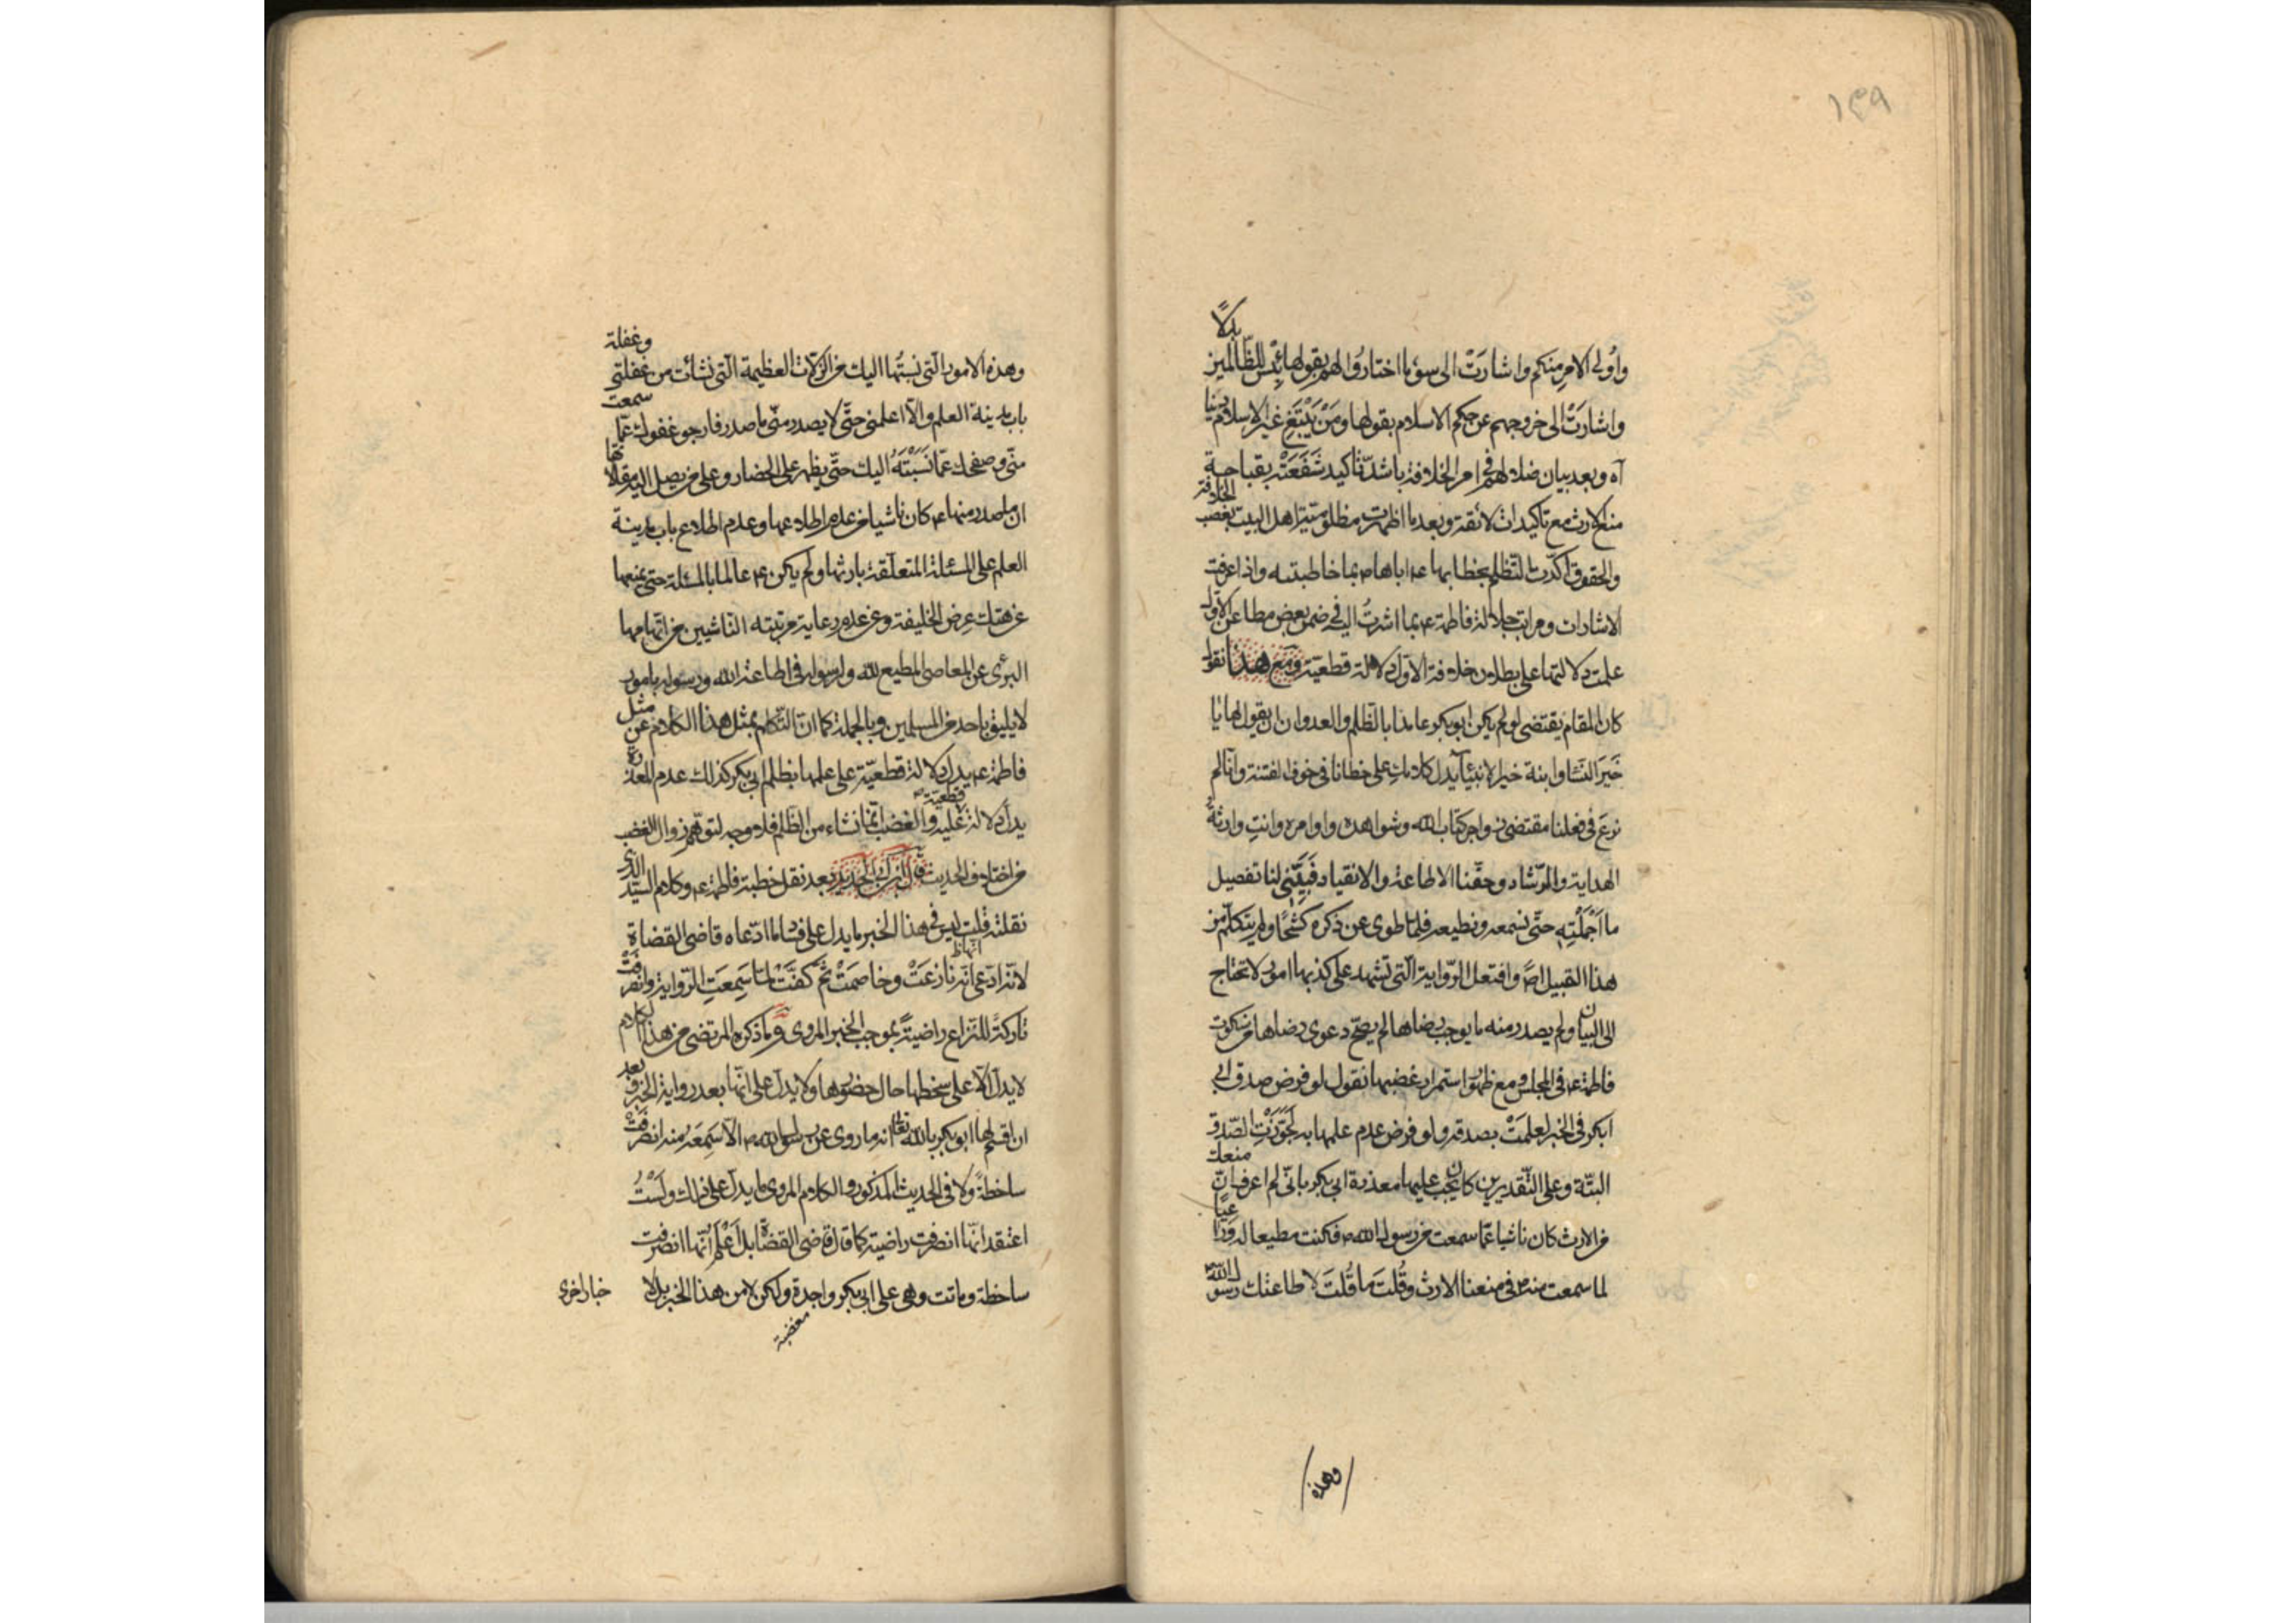 ١٣٩
واولى الامر منكم واشارت الى سوء ما اختاروا لهم بقولها بئس للظالمين بدلا
واشارت الى خروجهم عن حكم الاسلام بقولها ومن يبتغ غير الاسلام دينا
آه وبعد بيان ضلالهم في امر الخلافة باشد تاكيد شفعته بقباحة
منع الارث مع تاكيدات لائقة وبعد ما اظهرت مظلومية اهل البيت بغصب الخلافة
والحقوق اكدت التظلم بخطابها ع اباها ص بما خاطبته واذا عرفت
الاشارات ومراتب جلالة فاطمة ع بما اشرت اليه في ضمن بعض مطاعن الاول
علمت دلالتها على بطلان خلافة الاول دلالة قطعية ومع هذا نقول
كان المقام يقتضى لو لم يكن ابو بكر عامدا بالظلم والعدوان ان يقول لها يا
خير النسا وابنة خير الانبيا يدل كلامك على خطائنا في خوف الفتنة وانا لم
نرع في فعلنا مقتضى زواجر كتاب الله وشواهده واوامره وانت وارثة
الهداية والرشاد وحقنا الاطاعة والانقياد فبينى لنا تفصيل
ما اجملته حتى نسمعه ونطيعه فلما طوى عن ذكره كشحا ولم يتكلم من
هذا القبيل اصلا وافتعل الرواية التى تشهد على كذبها امور لا تحتاج
الى البيان ولم يصدر منه ما يوجب رضاها لم يصح دعوى رضاها من سكوت
فاطمة ع في المجلس ومع ظهور استمرار غضبها نقول لو فرض صدق ابى
ابكر في الخبر لعلمت بصدقه ولو فرض عدم علمها به لجوزت الصدق
البتة وعلى التقديرين كان يجب عليها معذرة ابى بكر بانى لم اعرف ان منعك
من الارث كان ناشيا عما سمعت من رسول الله ص فكنت مطيعا له وراعيا
لما سمعت منه ص في منعنا الارث وقلت ما قلت لاطاعتك رسول الله ص
وهذه
وهذه الامور التى نسبتها اليك من الزلات العظيمة التى نشأت من غفلتى وغفلة
باب مدينة العلم والا اعلمنى حتى لا يصدر منى ما صدر فارجو عفوك عما سمعت
منى وصفحك عما نسبته اليك حتى يظهر على الحضار وعلى من يصل اليه مقالاتها
ان ما صدر منها ع كان ناشيا من عدم اطلاعها وعدم اطلاع باب مدينة
العلم على المسئلة المتعلقة بارثها ولم يكن ع عالما بالمسئلة حتى يمنعها
عن هتك عرض الخليفة وعن عدم رعاية مرتبته الناشيين من اتهامها
البرى عن المعاصى المطيع لله ولرسوله في اطاعة الله ورسوله بامور
لا يليق باحد من المسلمين وبالجملة كما ان التكلم بمثل هذا الكلام عن مثل
فاطمة ع يدل دلالة قطعية على علمها بظلم ابى بكر كذلك عدم المعذرة
يدل دلالة قطعية عليه والغضب انما نشاء من الظلم فلا وجه لتوهم زوال الغضب
من اختلاف الحديث قال ابن ابى الحديد بعد نقل خطبة فاطمة ع وكلام السيد الذى
نقلته قلت ليس في هذا الخبر ما يدل على فساد ما ادعاه قاضى القضاة
لانه ادعى انها نازعت وخاصمت ثم كفت لما سمعت الرواية وانصرفت
تاركة للنزاع راضية بموجب الخبر المروى وما ذكره المرتضى من هذا الكلام
لا يدل الا على سخطها حال حضورها ولا يدل على انها بعد رواية الخبر وبعد
ان اقسم لها ابو بكر بالله تعالى انه ما روى عن رسول الله ص الا ما سمعه منه انصرفت
ساخطة ولا في الحديث المذكور والكلام المروى ما يدل على ذلك ولست
اعتقد انها انصرفت راضية كما قال قاضى القضاة بل اعلم انها انصرفت
ساخطة وماتت وهى على ابى بكر واجدة ولكن لا من هذا الخبر بل لاخبار اخرى
مغضبة